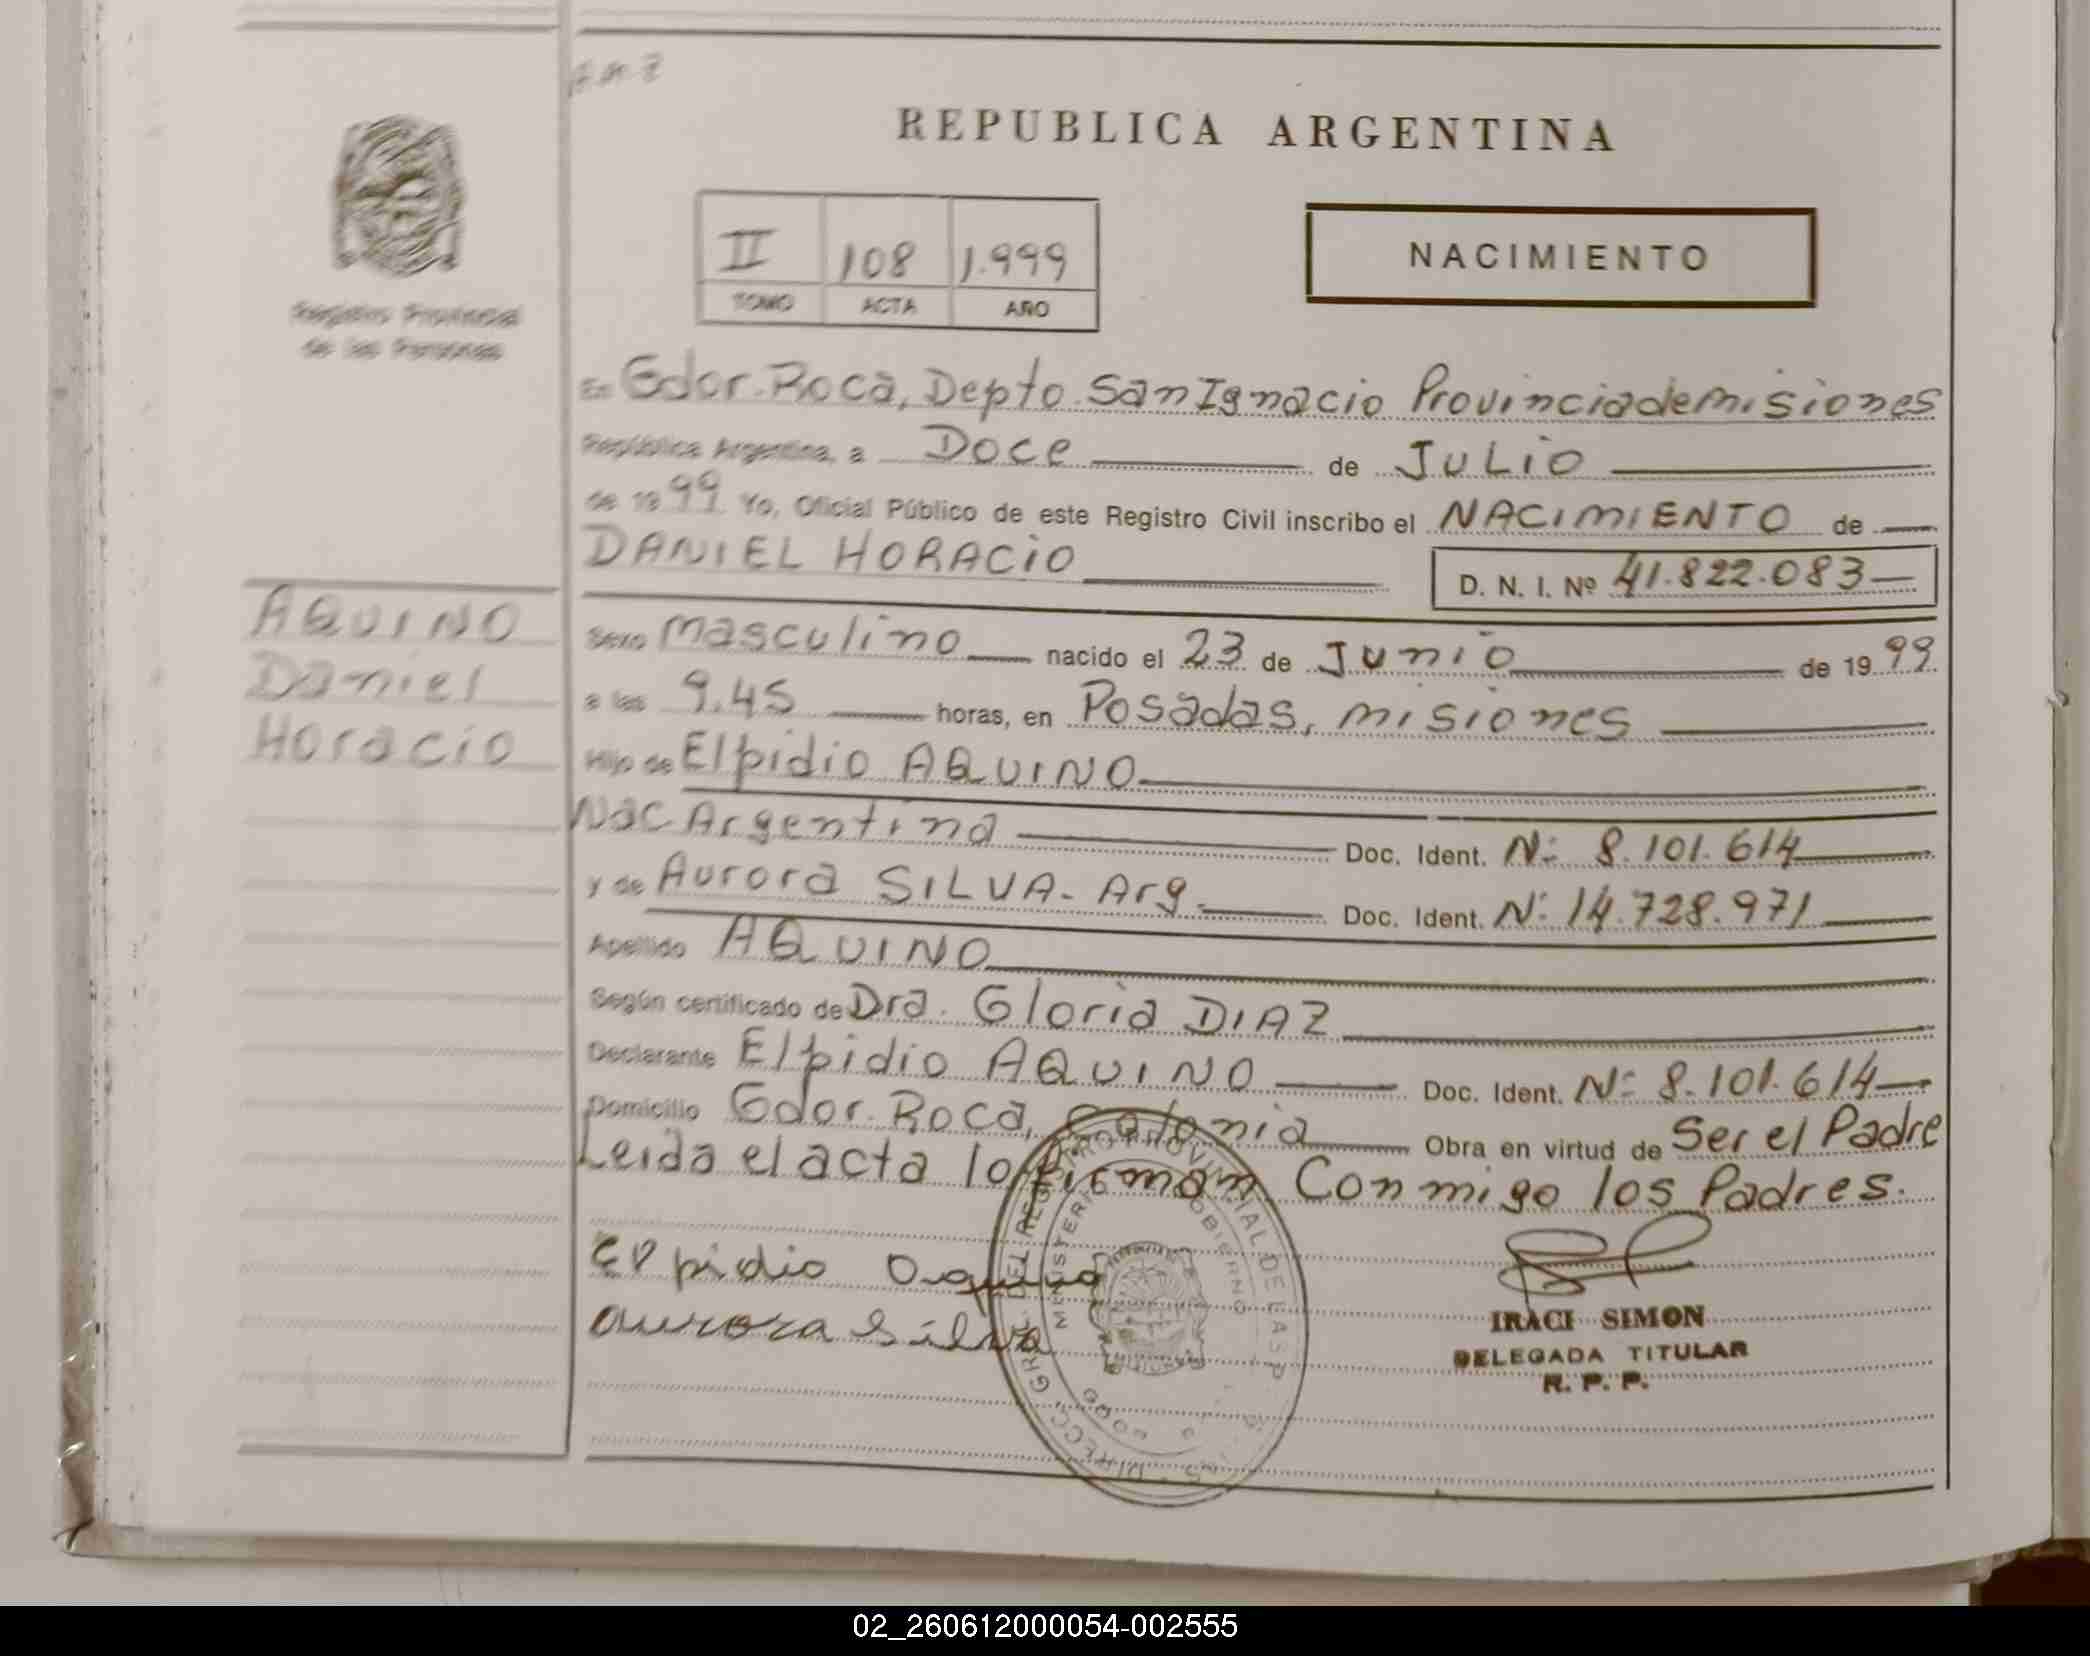 REPUBLICA ARGENTINA
II 108 1.999
TOMO ACTA AÑO
NACIMIENTO
Registro Provincial
de las Personas
En Gdor. Roca, Depto San Ignacio Provincia de misiones
República Argentina, a Doce de JULIO
de 1999 Yo, Oficial Público de este Registro Civil inscribo el NACIMIENTO de
DANIEL HORACIO
D. N. I. Nº 41.822.083
AQUINO
Daniel
Horacio
Sexo masculino nacido el 23 de Junio de 1999
a las 9.45 horas, en Posadas, misiones
Hijo de Elpidio AQUINO
Nac Argentina Doc. Ident. Nº 8.101.614
y de Aurora SILVA. Arg. Doc. Ident. Nº 14.728.971
Apellido AQUINO
Según certificado de Dra. Gloria DIAZ
Declarante Elpidio AQUINO Doc. Ident. Nº 8.101.614
Domicilio Gdor. Roca, Colonia Obra en virtud de Ser el Padre
Leida el acta la firman Conmigo los Padres.
Elpidio Aquino
aurora Silva
IRACI SIMON
DELEGADA TITULAR
R. P. P.
02_260612000054-002555